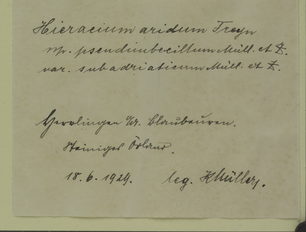 Hieracium aridum Freyn
ssp. pseudimbecillum Müll. et Z.
var. subadriaticum Müll. et Z.
Herrlingen b/ Blaubeuren.
Steiniges Ödland.
18.6.1929. leg. K Müller.